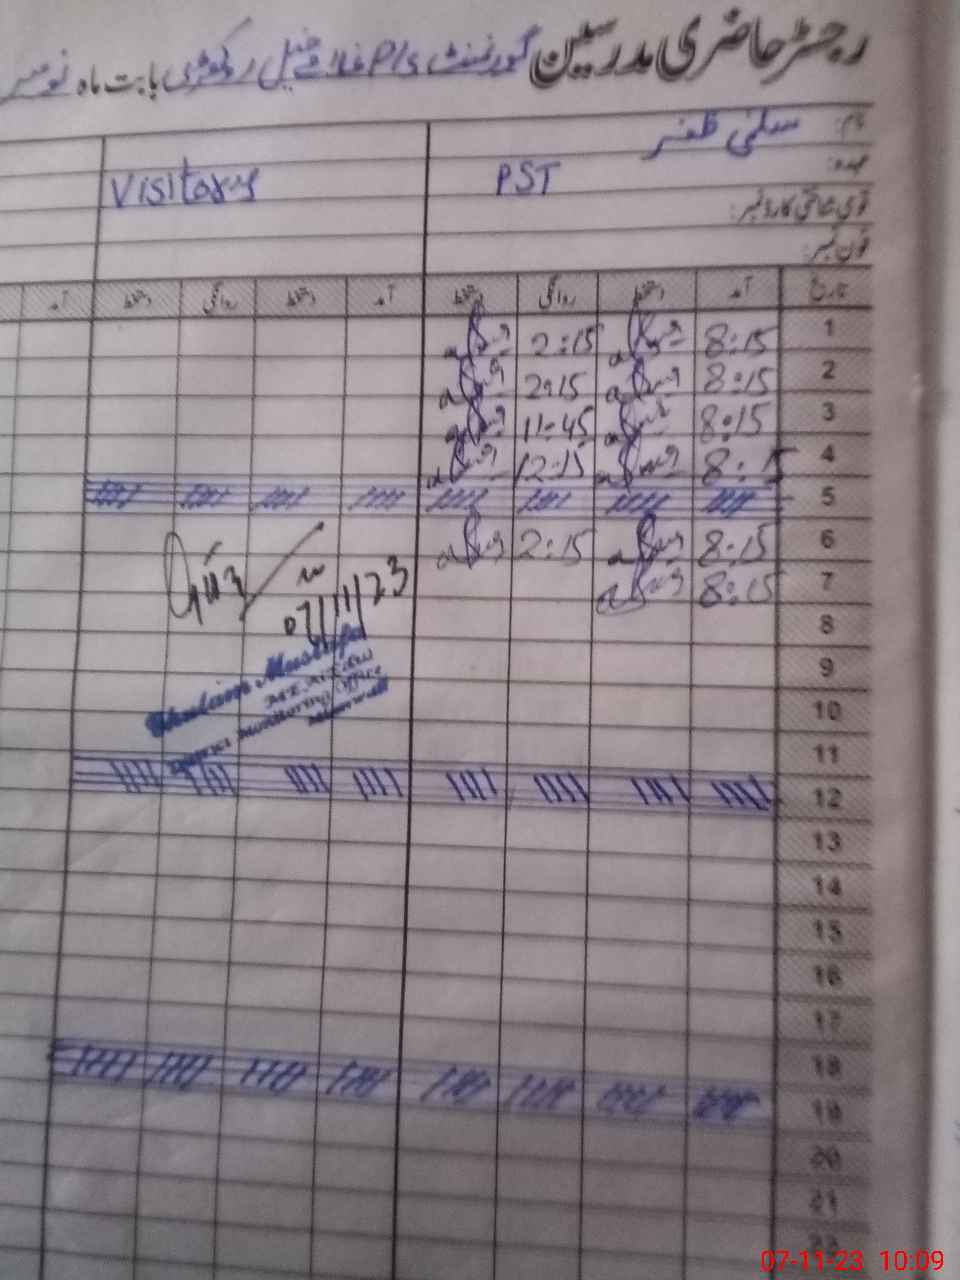 رجسٹر حاضری مدرسین گورنمنٹ P/S خیل روکھڑی بابت ماہ نومبر
نام: سلمیٰ ظفر
عہدہ: PST Visitors
قومی شناختی کارڈ نمبر:
فون نمبر:
تاریخ آمد دستخط روانگی دستخط آمد دستخط روانگی دستخط آمد
1 8:15 2:15
2 8:15 2:15
3 8:15 11:45
4 8:15 12:15
5
6 8:15 2:15
7 8:15
07/11/23
8
Ghulam Mustafa
9
Monitoring Office
10
11
12
13
14
15
16
17
18
19
20
21
22
07-11-23 10:09